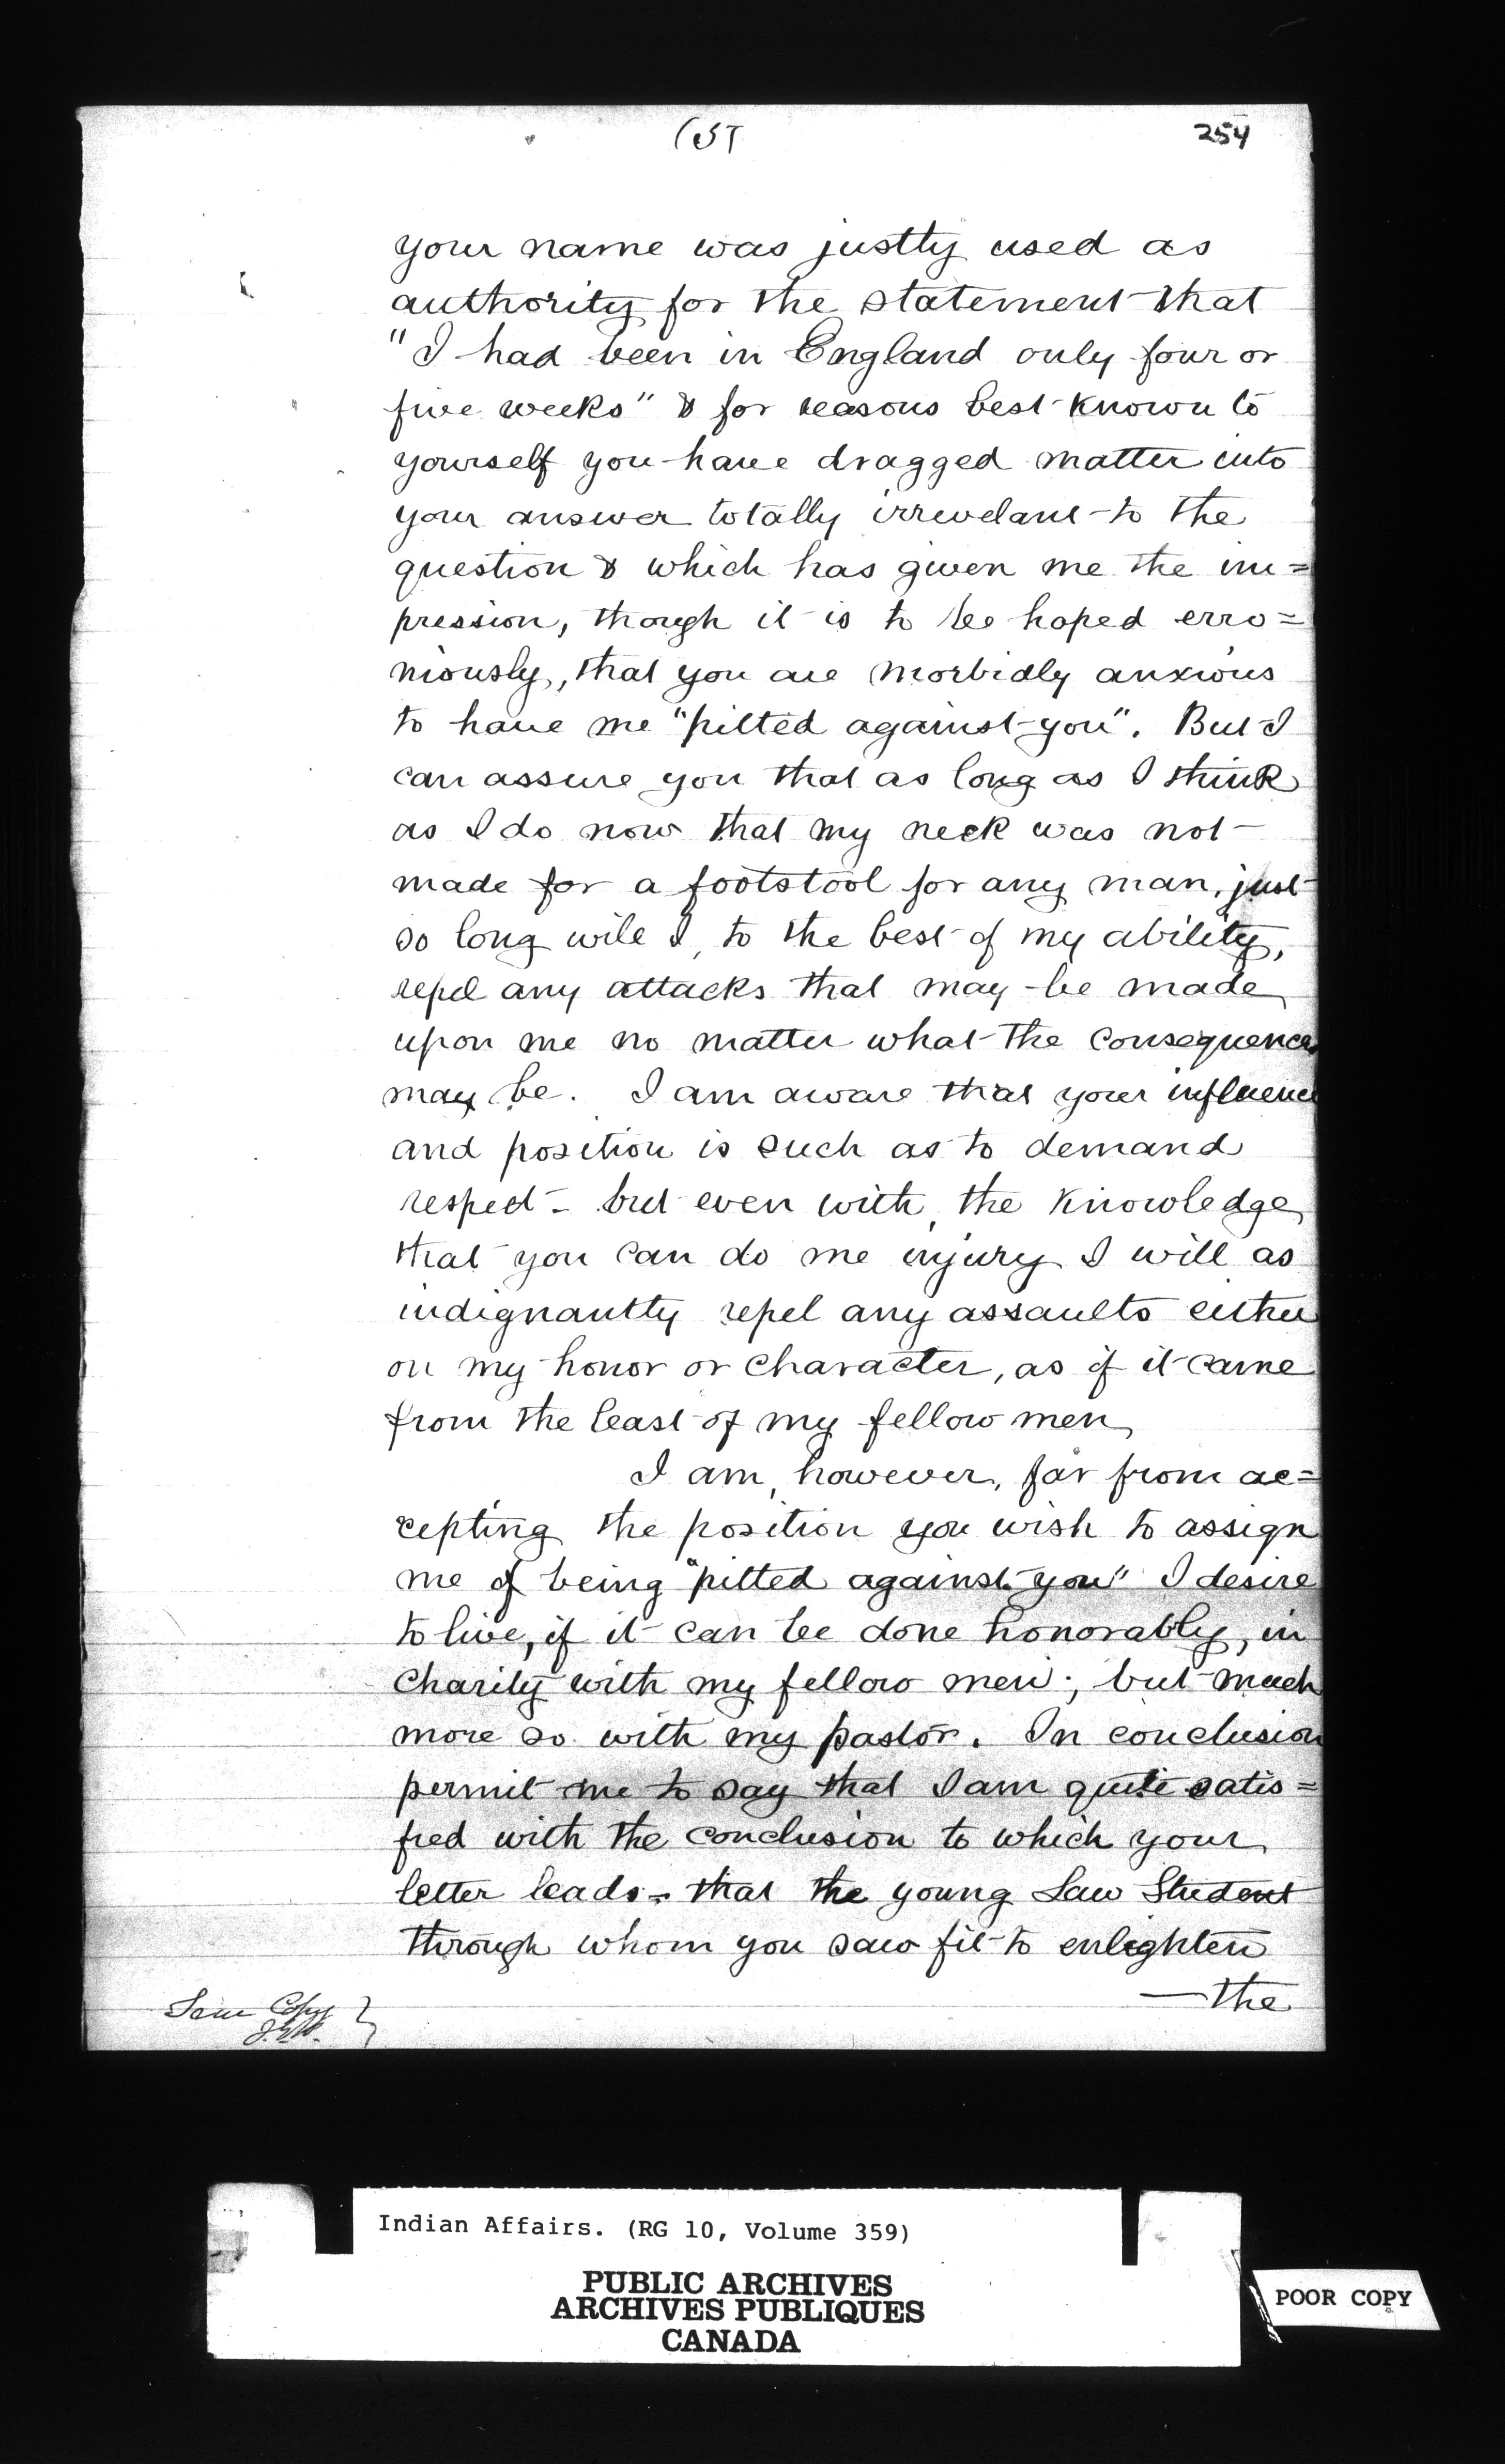 (5)
254
your name was justly used as
authority for the statement that
"I had been in England only four or
five weeks" & for reasons best known to
yourself you have dragged matter into
your answer totally irrevelant to the
question & which has given me the im=
pression, though it is to be hoped erro=
niously, that you are morbidly anxious
to have me "pitted against you". But I
can assure you that as long as I think
as I do now that my neck was not
made for a footstool for any man, just
so long will I, to the best of my ability,
repel any attacks that may be made
upon me no matter what the consequences
may be. I am aware that your influence
and position is such as to demand
respect - but even with the knowledge
that you can do me injury I will as
indignantly repel any assaults either
on my honor or character, as if it came
from the least of my fellow men
I am, however, far from ac=
cepting the position you wish to assign
me of being "pitted against you" I desire
to live, if it can be done honorably, in
charity with my fellow men; but much
more so with my pastor. In conclusion
permit me to say that I am quite satis=
fied with the conclusion to which your
letter leads - that the young Law Student
through whom you saw fit to enlighten
—the
Copy
Indian Affairs. (RG 10, Volume 359)
PUBLIC ARCHIVES
ARCHIVES PUBLIQUES
CANADA
POOR COPY